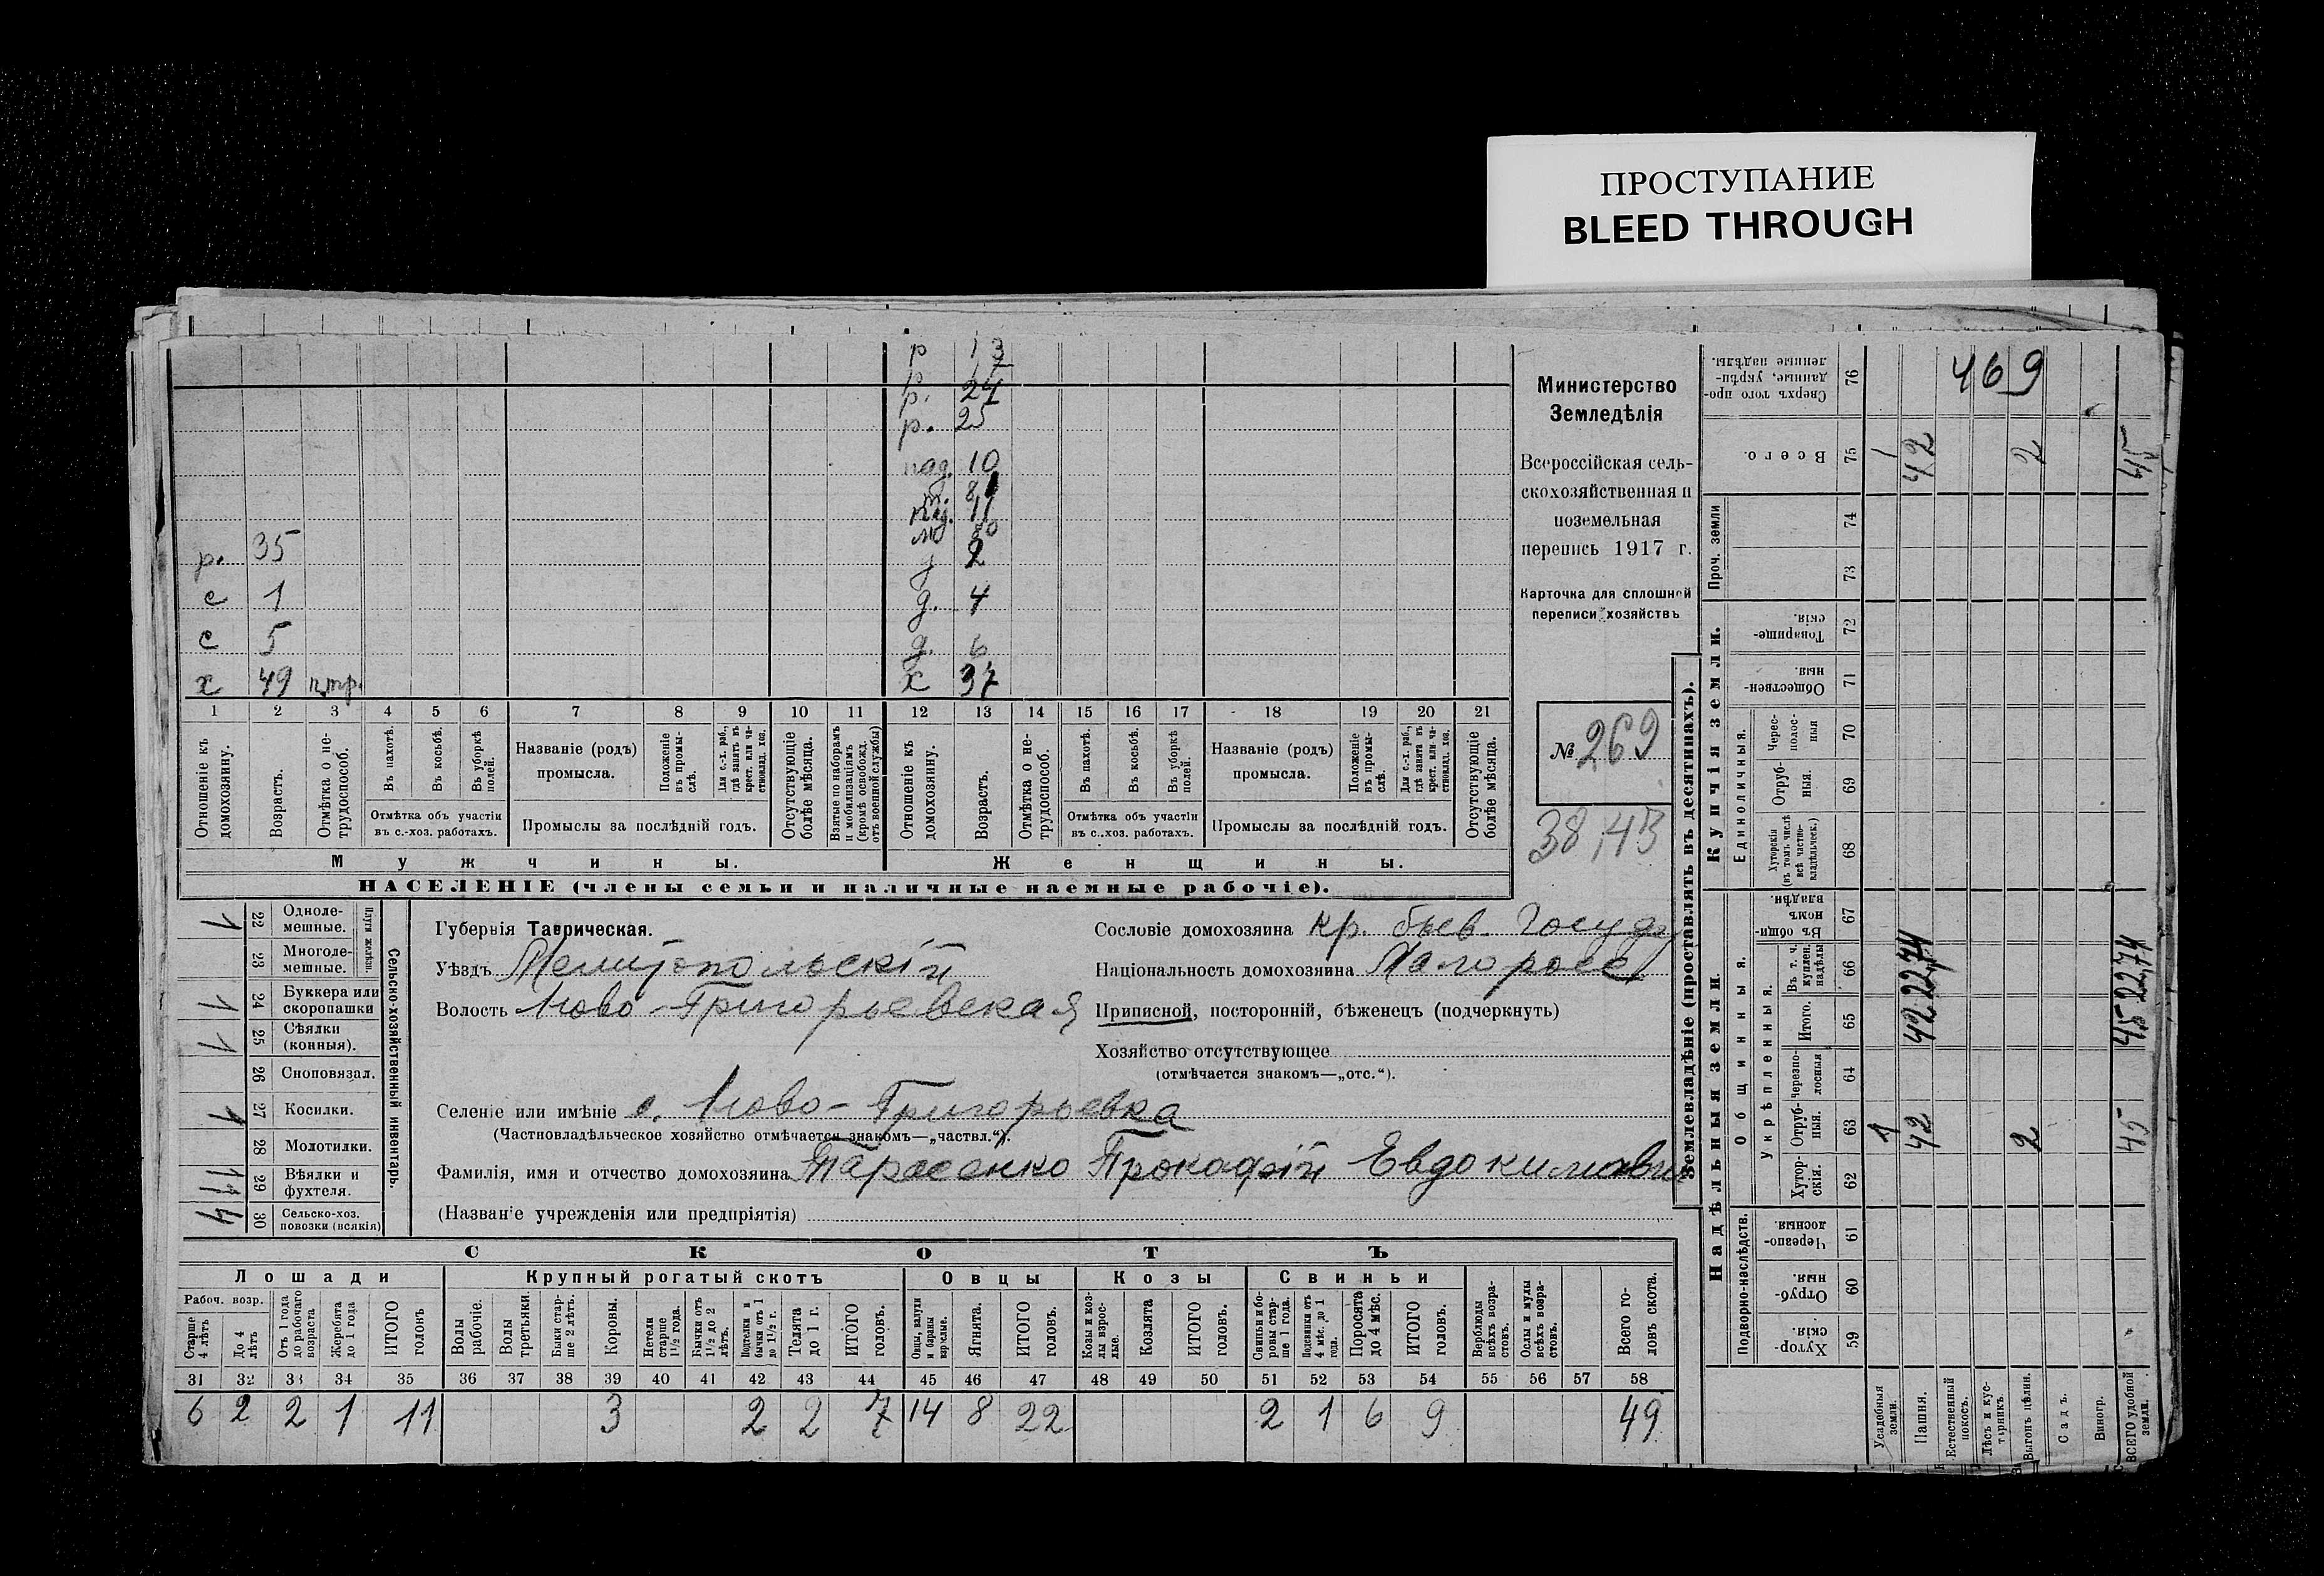 ПРОСТУПАНИЕ
BLEED THROUGH
р 13
р. 24
р. 25
10
р. 35
д. 4
с 1
с 5
д. 6
х 49
х 37
1 2 3 4 5 6 7 8 9 10 11 12 13 14 15 16 17 18 19 20 21
Отношеніе къ домохозяину.
Возрастъ.
Отмѣтка о нетрудоспособ.
Въ пахотѣ.
Въ косьбѣ.
Въ уборкѣ полей.
Отмѣтка объ участіи въ с.-хоз. работахъ.
Названіе (родъ) промысла.
Положеніе въ промыслѣ.
Для с.-х. раб., гдѣ занятъ въ крест. или частновлад. хоз.
Промыслы за послѣдній годъ.
Отсутствующіе болѣе мѣсяца.
Взятые по наборамъ и мобилизаціямъ (кромѣ освобожд. отъ военной службы)
Отношеніе къ домохозяину.
Возрастъ.
Отмѣтка о нетрудоспособ.
Въ пахотѣ.
Въ косьбѣ.
Въ уборкѣ полей.
Отмѣтка объ участіи въ с..хоз. работахъ.
Названіе (родъ) промысла.
Положеніе въ промыслѣ.
Для с.-х. раб., гдѣ занята въ крест. или частновлад. хоз.
Промыслы за послѣдній годъ.
Отсутствующіе болѣе мѣсяца.
Мужчины.
Женщины.
НАСЕЛЕНІЕ (члены семьи и наличные наемные рабочіе).
Министерство
Земледѣлія
Всероссійская сель-
скохозяйственная и
поземельная
перепись 1917 г.
Карточка для сплошной
переписи хозяйствъ
№ 269
38,43
Плуги желѣзн.
22 Одноле-мешные. 1
23 Многоле-мешные.
24 Буккера или скоропашки 1
25 Сѣялки (конныя). 1
26 Сноповязал.
27 Косилки. 1
28 Молотилки.
29 Вѣялки и фухтеля.
30 Сельско-хоз. повозки (всякія) 4
Сельско-хозяйственный инвентарь.
Губернія Таврическая.
Уѣздъ Мелитопольскій
Волость Ново-Григорьевская
Сословіе домохозяина кр. быв. Госуд
Національность домохозяина Малоросс
Приписной, посторонній, бѣженецъ (подчеркнуть)
Хозяйство отсутствующее
(отмѣчается знакомъ—„отс.“).
Селеніе или имѣніе с. Ново-Григорьевка
(Частновладѣльческое хозяйство отмѣчается знакомъ—„частвл.“).
Фамилія, имя и отчество домохозяина Тарасенко Прокофій Евдокимович
(Названіе учрежденія или предпріятія)
СКОТЪ
Лошади
Крупный рогатый скотъ
Овцы
Козы
Свиньи
Рабоч. возр.
Старше 4 лѣтъ
До 4 лѣтъ
Отъ 1 года до рабочаго возраста
Жеребята до 1 года
ИТОГО головъ
Волы рабочіе.
Волы третьяки.
Быки старше 2 лѣтъ.
Коровы.
Нетели старше 1½ года.
Бычки отъ 1½ до 2 лѣтъ.
Подтелки и бычки отъ 1 до 1½ г.
Телята до 1 г.
ИТОГО головъ.
Овцы, валухи и бараны взрослые.
Ягнята.
ИТОГО головъ.
Козы и козлы взрослые.
Козлята
ИТОГО головъ.
Свиньи и боровы старше 1 года.
Подсвинки отъ 4 мѣс. до 1 года.
Поросята до 4 мѣс.
ИТОГО головъ.
Верблюды всѣхъ возрастовъ.
Ослы и мулы всѣхъ возрастовъ.
Всего головъ скота.
31 32 33 34 35 36 37 38 39 40 41 42 43 44 45 46 47 48 49 50 51 52 53 54 55 56 57 58
6 2 2 1 11 3 2 2 7 14 8 22 2 1 6 9 49
Землевладѣніе (проставлять въ десятинахъ).
Купчія земли.
Надѣльныя земли.
Сверхъ того проданные, укрѣпленные надѣлы. 76 469
Всего. 75 1 42 2 45
Проч. земли 74 73
Товарищескія. 72
Общественныя. 71
Единоличныя.
Чересполосныя 70
Отрубныя. 69
Хуторскія (въ томъ числѣ всѣ частновладѣльческ.) 68
Общинныя.
Въ общинномъ владѣн. 67
Укрѣпленныя.
Въ т. ч. куплен. надѣлы 66 22,74 22,74
Итого. 65 42 45
Черезполосныя 64
Отрубныя. 63 1 42 2 45
Хуторскія. 62
Подворно-наслѣдств.
Черезполосныя. 61
Отрубныя. 60
Хуторскія. 59
Усадебныя земли.
Пашня.
Естественный покосъ.
Лѣсъ и кустарникъ.
Выгонъ цѣлин.
Садъ.
Виногр.
ВСЕГО удобной земли.